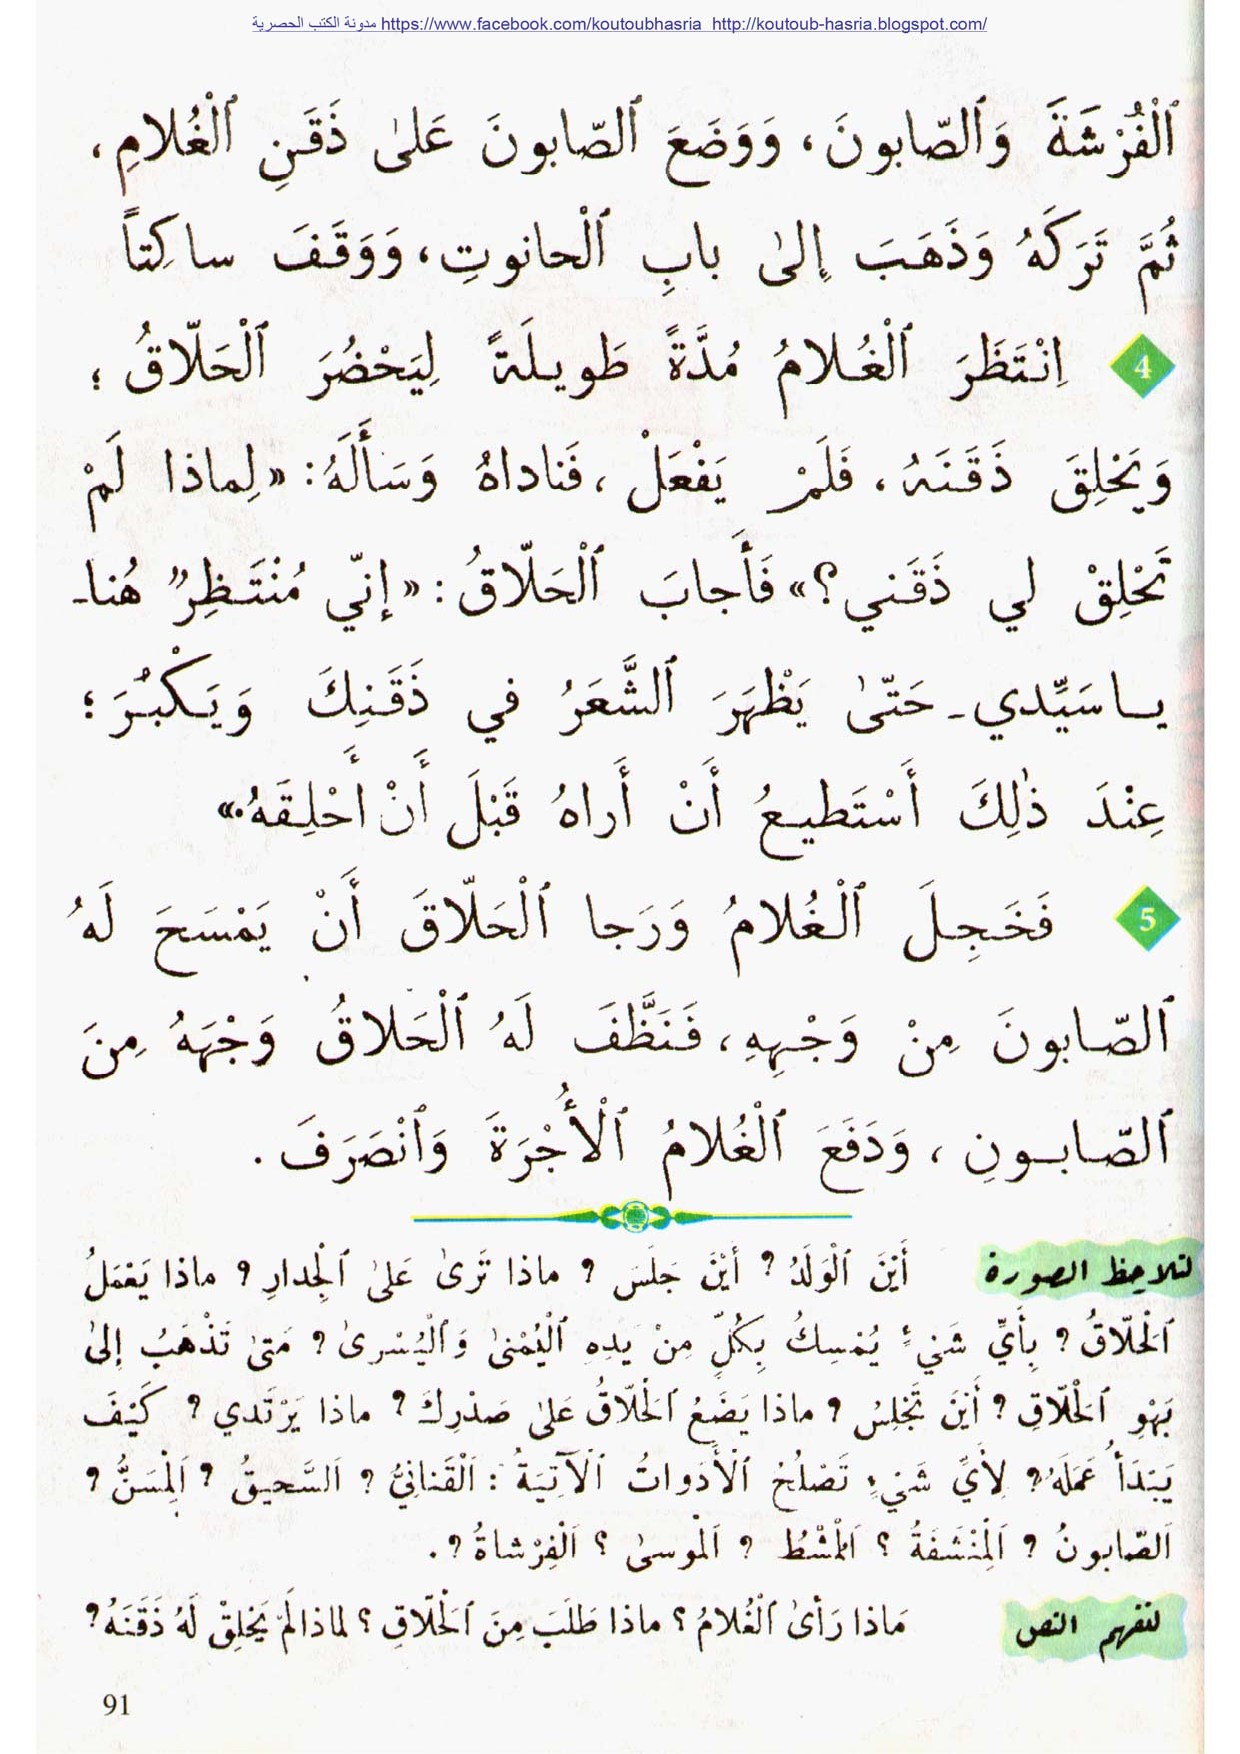 مدونة الكتب الحصرية https://www.facebook.com/koutoubhasria http://koutoub-hasria.blogspot.com/
ٱلْفُرْشَةَ وَٱلصّابونَ، وَوَضَعَ ٱلصّابونَ عَلىٰ ذَقَنِ ٱلْغُلامِ،
ثُمَّ تَرَكَهُ وَذَهَبَ إِلىٰ بابِ ٱلْحانوتِ، وَوَقَفَ ساكِتاً
4 اِنْتَظَرَ ٱلْغُلامُ مُدَّةً طَويلَةً لِيَحْضُرَ ٱلْحَلّاقُ ؛
وَيَحْلِقَ ذَقَنَهُ، فَلَمْ يَفْعَلْ، فَناداهُ وَسَأَلَهُ: «لِماذا لَمْ
تَحْلِقْ لي ذَقَني؟» فَأَجابَ ٱلْحَلّاقُ: «إنّي مُنْتَظِرٌ هُنا-
ياسَيِّدي- حَتّىٰ يَظْهَرَ ٱلشَّعَرُ في ذَقَنِكَ وَيَكْبُرَ؛
عِنْدَ ذٰلِكَ أَسْتَطيعُ أَنْ أَراهُ قَبْلَ أَنْ أَحْلِقَهُ.»
5 فَخَجِلَ ٱلْغُلامُ وَرَجا ٱلْحَلّاقَ أَنْ يَمْسَحَ لَهُ
ٱلصّابونَ مِنْ وَجْهِهِ، فَنَظَّفَ لَهُ ٱلْحَلاقُ وَجْهَهُ مِنَ
ٱلصّابونِ، وَدَفَعَ ٱلْغُلامُ ٱلْأُجْرَةَ وَٱنْصَرَفَ.
لنلاحِظ الصورة أَيْنَ ٱلْوَلَدُ؟ أَيْنَ جَلَسَ؟ ماذا تَرىٰ عَلىٰ ٱلْجِدارِ؟ ماذا يَعْمَلُ
ٱلْحَلّاقُ؟ بِأَيِّ شَيْءٍ يُمْسِكُ بِكُلٍّ مِنْ يَدِهِ ٱلْيُمْنىٰ وَٱلْيُسْرىٰ؟ مَتىٰ تَذْهَبُ إِلىٰ
بَهْوِ ٱلْحَلّاقِ؟ أَيْنَ تَجْلِسُ؟ ماذا يَضَعُ ٱلْحَلّاقُ عَلىٰ صَدْرِكَ؟ ماذا يَرْتَدي؟ كَيْفَ
يَبْدَأُ عَمَلَهُ؟ لِأَيِّ شَيْءٍ تَصْلُحُ ٱلْأَدَواتُ ٱلْآتِيَةُ: اَلْقَنانِيُّ؟ اَلسَّحيقُ؟ اَلْمِسَنُّ؟
اَلصّابونُ؟ اَلْمِنْشَفَةُ؟ اَلْمُشْطُ؟ اَلْموسىٰ؟ اَلْفِرْشاةُ؟.
لنفهم النص مَاذا رَأىٰ ٱلْغُلامُ؟ ماذا طَلَبَ مِنَ ٱلْحَلّاقِ؟ لماذا لَمْ يَحْلِقْ لَهُ ذَقَنَهُ؟
91